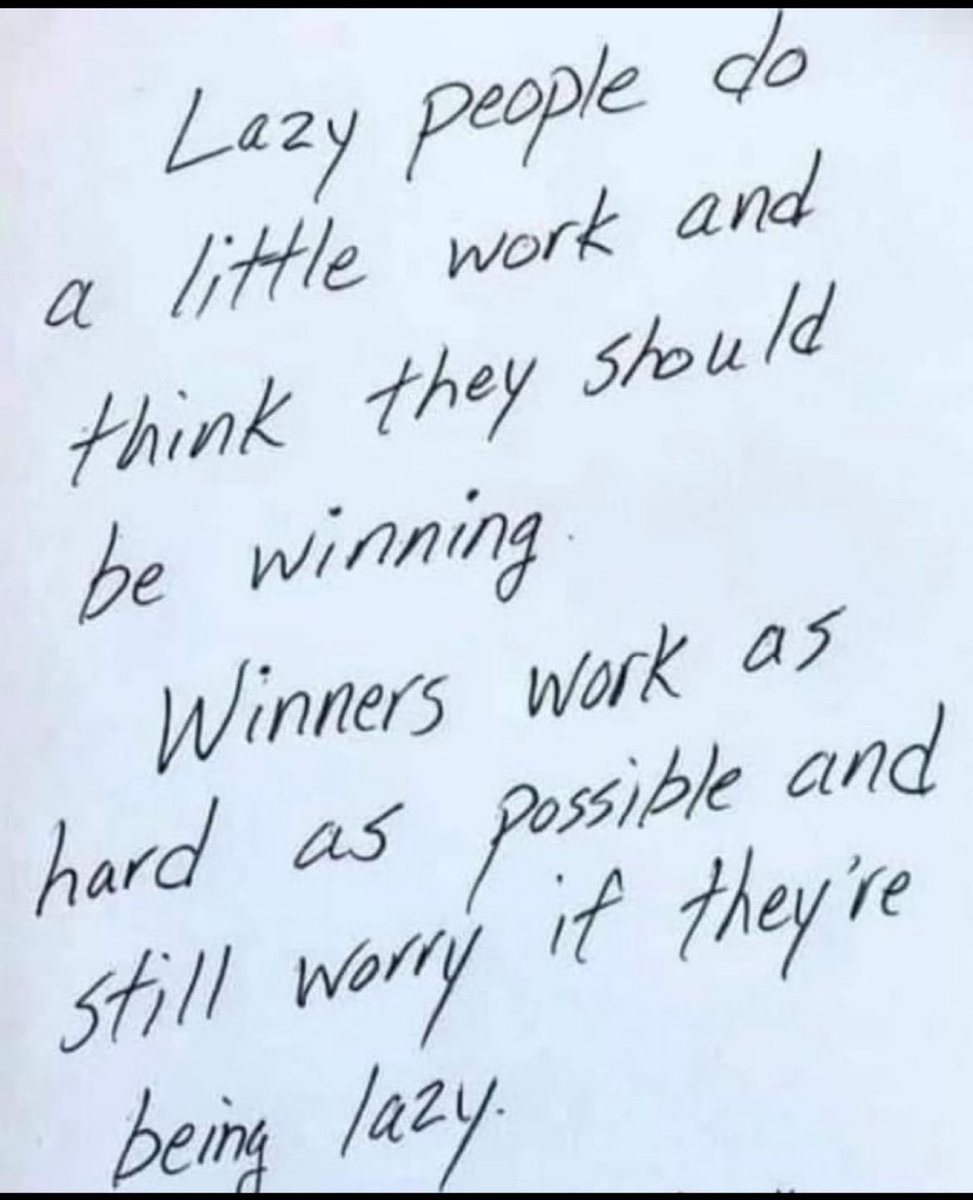 Lazy people do
a little work and
think they should
be winning.
Winners work as
hard as possible and
still worry if they're
being lazy.